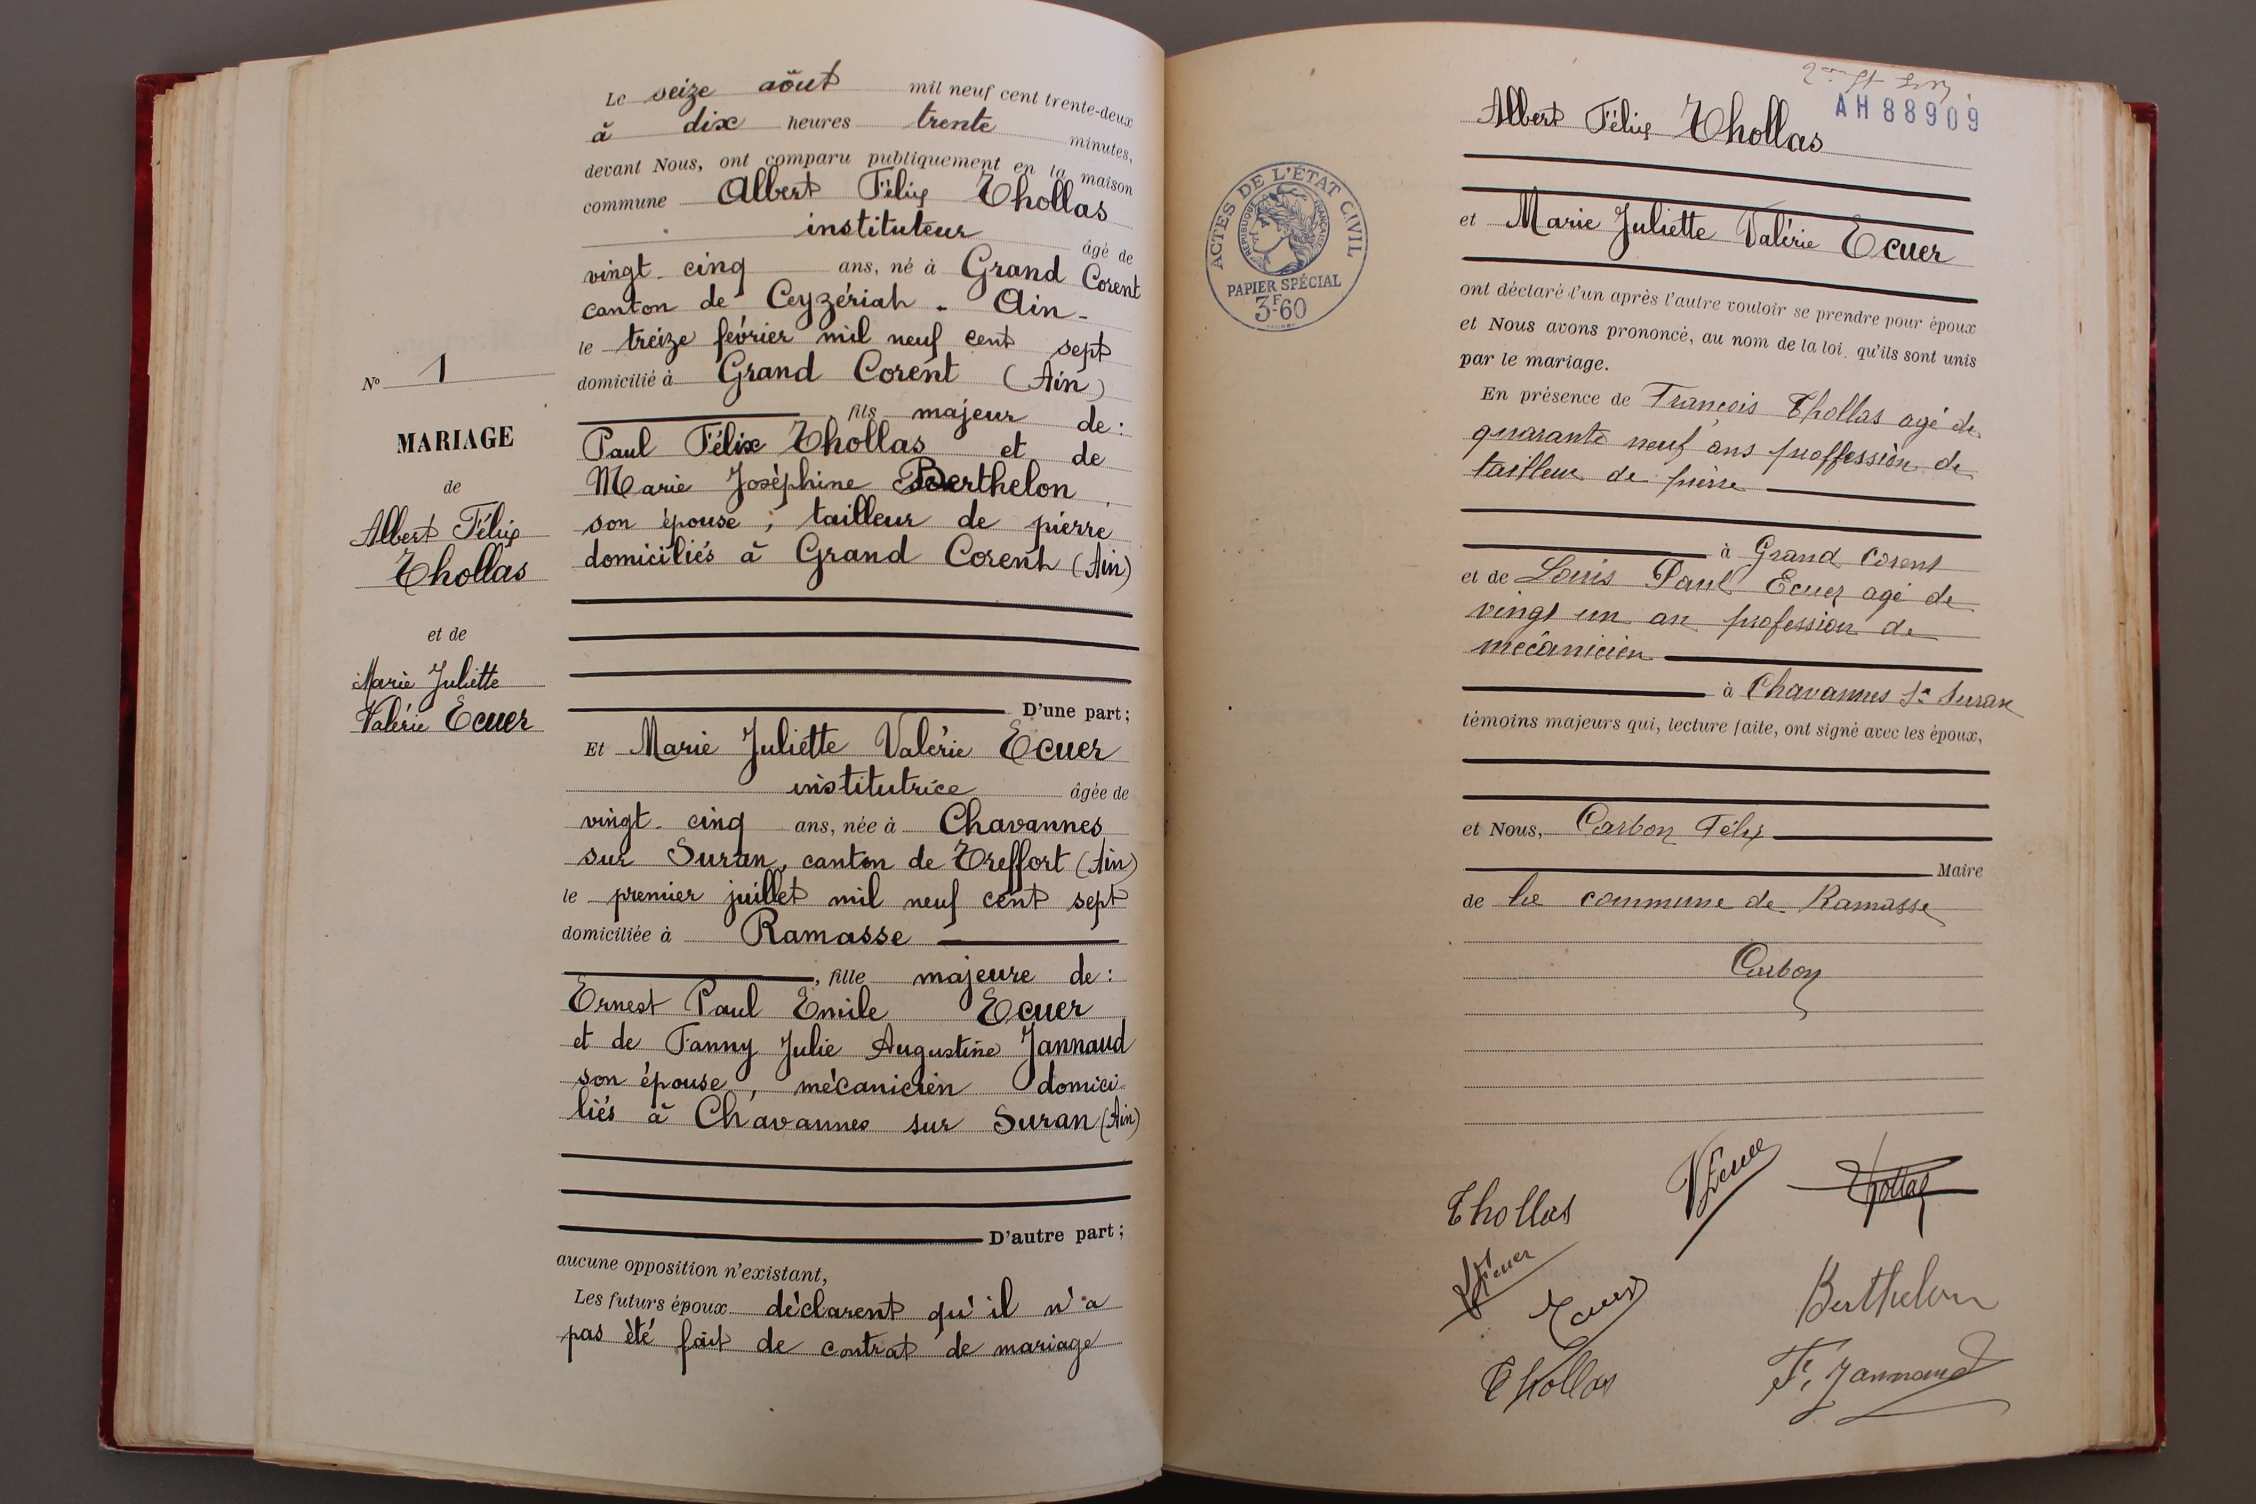 Le seize août mil neuf cent trente-deux
à dix heures trente minutes,
devant Nous, ont comparu publiquement en la maison
commune Albert Félix Thollas
instituteur âgé de
vingt-cinq ans, né à Grand Corent
canton de Ceyzériat - Ain -
le treize février mil neuf cent sept
domicilié à Grand Corent (Ain)
, fils majeur de :
Paul Félix Thollas et de
Marie Joséphine Berthelon
son épouse, tailleur de pierre
domiciliés à Grand Corent (Ain)
D'une part;
Et Marie Juliette Valérie Ecuer
institutrice âgée de
vingt-cinq ans, née à Chavannes
sur Suran, canton de Treffort (Ain)
le premier juillet mil neuf cent sept
domiciliée à Ramasse
, fille majeure de :
Ernest Paul Emile Ecuer
et de Fanny Julie Augustine Jannaud
son épouse, mécanicien domici-
liés à Chavannes sur Suran (Ain)
D'autre part;
aucune opposition n'existant,
Les futurs époux déclarent qu'il n'a
pas été fait de contrat de mariage
N° 1
MARIAGE
de
Albert Félix
Thollas
et de
Marie Juliette
Valérie Ecuer
AH 88909
Albert Félix Thollas
et Marie Juliette Valérie Ecuer
ont déclaré l'un après l'autre vouloir se prendre pour époux
et Nous avons prononcé, au nom de la loi, qu'ils sont unis
par le mariage.
En présence de François Thollas agé de
quarante neuf ans proffession de
tailleur de pierre
à Grand Corent
et de Louis Paul Ecuer agé de
vingt un an profession de
mécanicien
à Chavannes s/ Suran
témoins majeurs qui, lecture faite, ont signé avec les époux,
et Nous, Carbon Félix
Maire
de la commune de Ramasse
Carbon
Thollas
V Ecuer
Thollas
Ecuer
Ecuer
Berthelon
Thollas
F. Jannaud
ACTES DE L'ÉTAT CIVIL
RÉPUBLIQUE FRANÇAISE
PAPIER SPÉCIAL
3F60